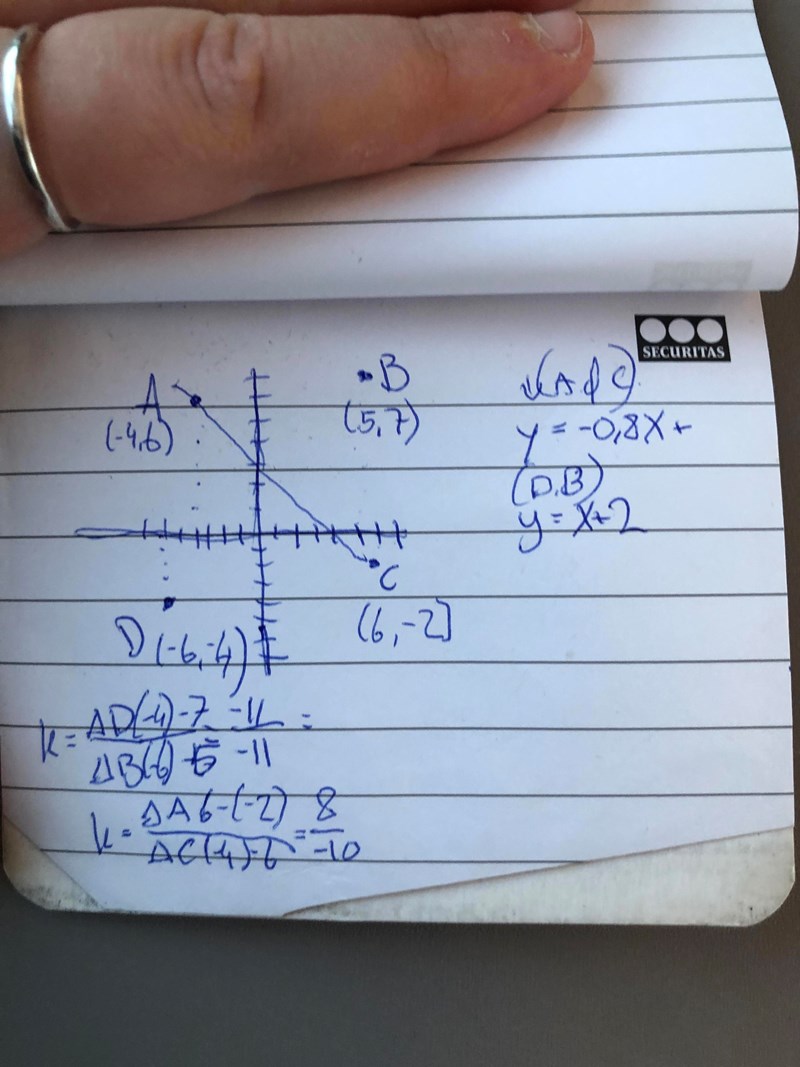 SECURITAS
A
(-4,6)
B
(5,7)
C
(6,-2]
D (-6,-4)
(A & C)
y = -0,8x+
(D,B)
y = x+2
k = ΔD(-4)-7 = -11 =
ΔB(-6)-5 -11
k = ΔA 6-(-2) = 8
ΔC(-4)-6 -10